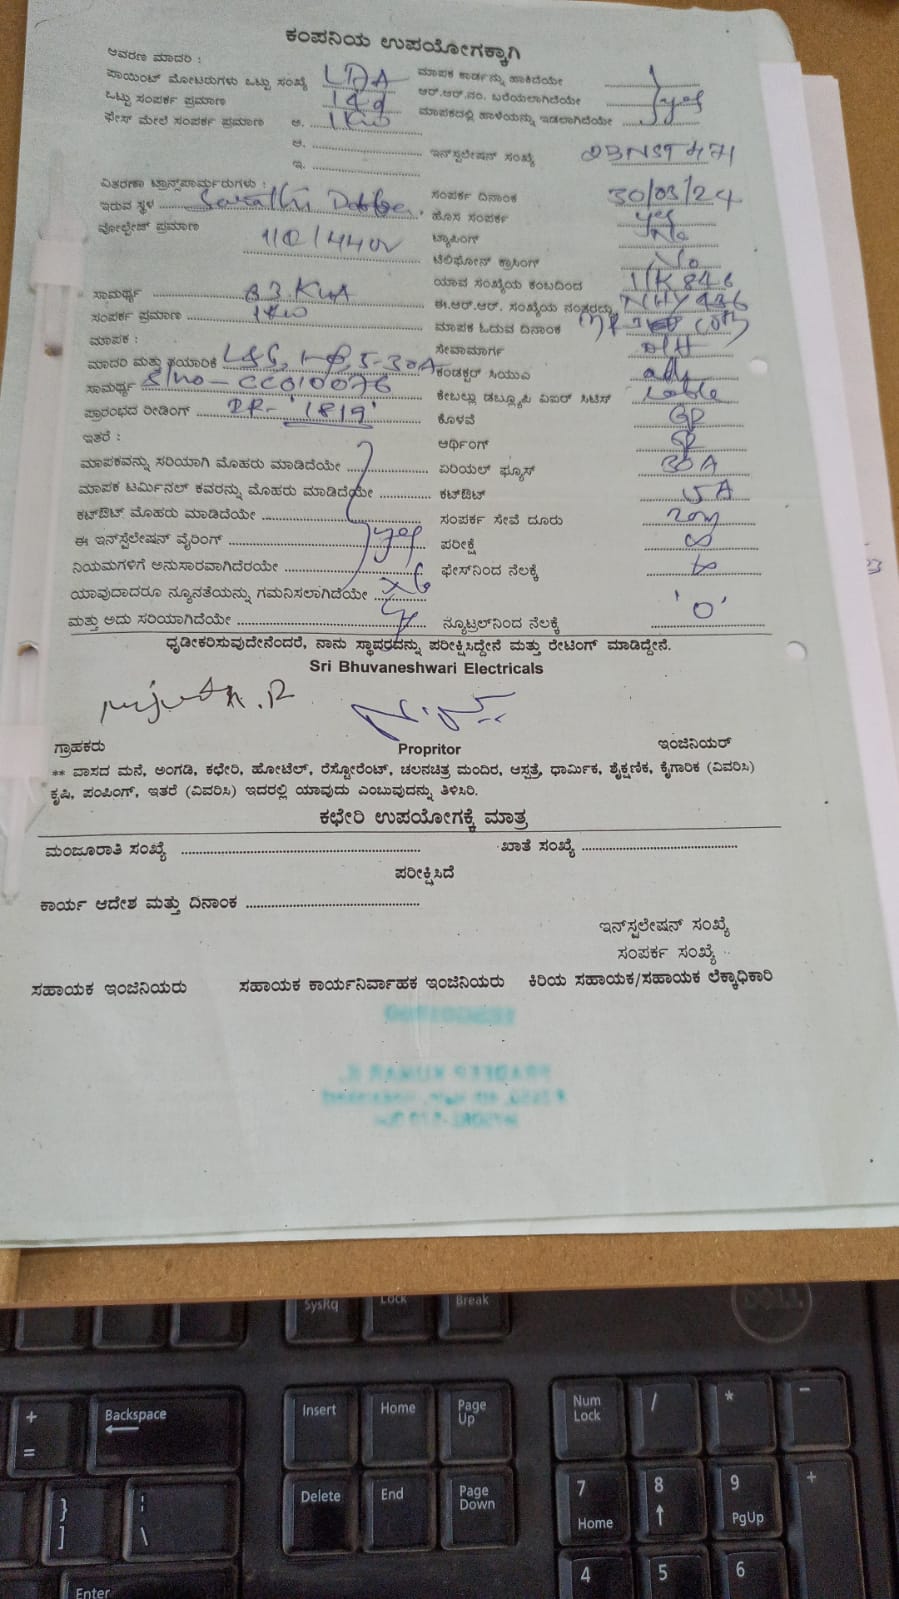 ಕಂಪನಿಯ ಉಪಯೋಗಕ್ಕಾಗಿ
ಆವರಣ ಮಾದರಿ :
ಪಾಯಿಂಟ್ ಮೋಟರುಗಳು ಒಟ್ಟು ಸಂಖ್ಯೆ ಮಾಪಕ ಕಾರ್ಡನ್ನು ಹಾಕಿದೆಯೇ
ಒಟ್ಟು ಸಂಪರ್ಕ ಪ್ರಮಾಣ ಆರ್.ಆರ್.ನಂ. ಬರೆಯಲಾಗಿದೆಯೇ yes
ಫೇಸ್ ಮೇಲೆ ಸಂಪರ್ಕ ಪ್ರಮಾಣ ಅ. 1KW ಮಾಪಕದಲ್ಲಿ ಹಾಳೆಯನ್ನು ಇಡಲಾಗಿದೆಯೇ
ಆ. ಇನ್‌ಸ್ಟಲೇಷನ್ ಸಂಖ್ಯೆ
ಇ.
ವಿತರಣಾ ಟ್ರಾನ್ಸ್‌ಫಾರ್ಮರುಗಳು : ಸಂಪರ್ಕ ದಿನಾಂಕ 30/03/24
ಇರುವ ಸ್ಥಳ ಹೊಸ ಸಂಪರ್ಕ yes
ವೋಲ್ಟೇಜ್ ಪ್ರಮಾಣ ಟ್ಯಾಪಿಂಗ್ No
ಟೆಲಿಫೋನ್ ಕ್ರಾಸಿಂಗ್ No
ಸಾಮರ್ಥ್ಯ ಯಾವ ಸಂಖ್ಯೆಯ ಕಂಬದಿಂದ
ಸಂಪರ್ಕ ಪ್ರಮಾಣ 1KW ಈ.ಆರ್.ಆರ್. ಸಂಖ್ಯೆಯ ನಂತರದ್ದು NHY436
ಮಾಪಕ : ಮಾಪಕ ಓದುವ ದಿನಾಂಕ
ಮಾದರಿ ಮತ್ತು ತಯಾರಿಕೆ 5-30A ಸೇವಾಮಾರ್ಗ O/H
ಸಾಮರ್ಥ್ಯ S/no - CC010076 ಕಂಡಕ್ಟರ್ ಸಿಯುಎ
ಪ್ರಾರಂಭದ ರೀಡಿಂಗ್ '1819' ಕೇಬಲ್ಲು ಡಬ್ಲ್ಯೂಪಿ ವಿಐರ್ ಸಿಟಿಸ್ cable
ಇತರೆ : ಕೊಳವೆ GP
ಆರ್ಥಿಂಗ್
ಮಾಪಕವನ್ನು ಸರಿಯಾಗಿ ಮೊಹರು ಮಾಡಿದೆಯೇ ಏರಿಯಲ್ ಫ್ಯೂಸ್ 30A
ಮಾಪಕ ಟರ್ಮಿನಲ್ ಕವರನ್ನು ಮೊಹರು ಮಾಡಿದೆಯೇ ಕಟ್‌ಔಟ್
ಕಟ್‌ಔಟ್ ಮೊಹರು ಮಾಡಿದೆಯೇ ಸಂಪರ್ಕ ಸೇವೆ ದೂರು
ಈ ಇನ್‌ಸ್ಟೆಲೇಷನ್ ವೈರಿಂಗ್ yes ಪರೀಕ್ಷೆ ∞
ನಿಯಮಗಳಿಗೆ ಅನುಸಾರವಾಗಿದೆರಯೇ ಫೇಸ್‌ನಿಂದ ನೆಲಕ್ಕೆ
ಯಾವುದಾದರೂ ನ್ಯೂನತೆಯನ್ನು ಗಮನಿಸಲಾಗಿದೆಯೇ
ಮತ್ತು ಅದು ಸರಿಯಾಗಿದೆಯೇ ನ್ಯೂಟ್ರಲ್‌ನಿಂದ ನೆಲಕ್ಕೆ '0'
ಧೃಡೀಕರಿಸುವುದೇನೆಂದರೆ, ನಾನು ಸ್ಥಾವರವನ್ನು ಪರೀಕ್ಷಿಸಿದ್ದೇನೆ ಮತ್ತು ರೇಟಿಂಗ್ ಮಾಡಿದ್ದೇನೆ.
Sri Bhuvaneshwari Electricals
ಗ್ರಾಹಕರು Propritor ಇಂಜಿನಿಯರ್
** ವಾಸದ ಮನೆ, ಅಂಗಡಿ, ಕಛೇರಿ, ಹೋಟೆಲ್, ರೆಸ್ಟೋರೆಂಟ್, ಚಲನಚಿತ್ರ ಮಂದಿರ, ಆಸ್ಪತ್ರೆ, ಧಾರ್ಮಿಕ, ಶೈಕ್ಷಣಿಕ, ಕೈಗಾರಿಕ (ವಿವರಿಸಿ)
ಕೃಷಿ, ಪಂಪಿಂಗ್, ಇತರೆ (ವಿವರಿಸಿ) ಇದರಲ್ಲಿ ಯಾವುದು ಎಂಬುವುದನ್ನು ತಿಳಿಸಿರಿ.
ಕಛೇರಿ ಉಪಯೋಗಕ್ಕೆ ಮಾತ್ರ
ಮಂಜೂರಾತಿ ಸಂಖ್ಯೆ ಖಾತೆ ಸಂಖ್ಯೆ
ಪರೀಕ್ಷಿಸಿದೆ
ಕಾರ್ಯ ಆದೇಶ ಮತ್ತು ದಿನಾಂಕ
ಇನ್‌ಸ್ಟಲೇಷನ್ ಸಂಖ್ಯೆ
ಸಂಪರ್ಕ ಸಂಖ್ಯೆ
ಸಹಾಯಕ ಇಂಜಿನಿಯರು ಸಹಾಯಕ ಕಾರ್ಯನಿರ್ವಾಹಕ ಇಂಜಿನಿಯರು ಕಿರಿಯ ಸಹಾಯಕ/ಸಹಾಯಕ ಲೆಕ್ಕಾಧಿಕಾರಿ
PRADEEP KUMAR
SysRq Lock Break
DELL
+ = Backspace Insert Home Page Up Num Lock / * -
} ] Delete End Page Down 7 Home 8 9 PgUp +
\ Enter 4 5 6